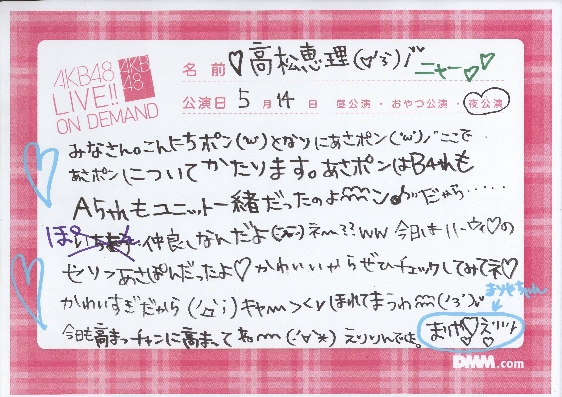 AKB48
LIVE!!
ON DEMAND
AKB
48
名前 ♡高松恵理(♡'3`)ノ" ニャー♡♡
公演日 5月14日 昼公演・おやつ公演・夜公演
みなさん。こんにちポン('ω')となりにあさポン('ω')ノここで
あさポンについてかたります。あさポンはB4thも
A5thもユニット一緒だったのよ だから・・・・・
ぽ 仲良しなんだよ ネ ?? ww 今日 の
セリフあさぽんだったよ♡かわいいからぜひチェックしてみてネ♡
かわいすぎだから キャー ><ほれてまうわ ('3`)
まりやちゃん
今日も高まっチャンに高まってね えりりんでした。
まりや♡えりりん
DMM.com